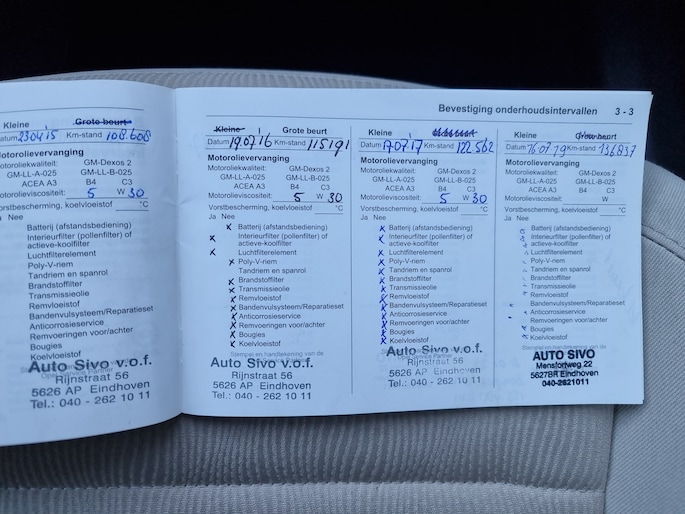 Bevestiging onderhoudsintervallen 3 - 3
Kleine Grote beurt
Datum 230415 Km-stand 108.608
Motorolievervanging
Motoroliekwaliteit: GM-Dexos 2
GM-LL-A-025 GM-LL-B-025
ACEA A3 B4 C3
Motorolieviscositeit: 5 W 30
Vorstbescherming, koelvloeistof °C
Ja Nee
Batterij (afstandsbediening)
Interieurfilter (pollenfilter) of
actieve-koolfilter
Luchtfilterelement
Poly-V-riem
Tandriem en spanrol
Brandstoffilter
Transmissieolie
Remvloeistof
Bandenvulsysteem/Reparatieset
Anticorrosieservice
Remvoeringen voor/achter
Bougies
Koelvloeistof
Auto Sivo v.o.f.
Rijnstraat 56
5626 AP Eindhoven
Tel.: 040 - 262 10 11
Kleine Grote beurt
Datum 190716 Km-stand 115191
Motorolievervanging
Motoroliekwaliteit: GM-Dexos 2
GM-LL-A-025 GM-LL-B-025
ACEA A3 B4 C3
Motorolieviscositeit: 5 W 30
Vorstbescherming, koelvloeistof °C
Ja Nee
Batterij (afstandsbediening)
Interieurfilter (pollenfilter) of
actieve-koolfilter
Luchtfilterelement
Poly-V-riem
Tandriem en spanrol
Brandstoffilter
Transmissieolie
Remvloeistof
Bandenvulsysteem/Reparatieset
Anticorrosieservice
Remvoeringen voor/achter
Bougies
Koelvloeistof
Stempel en handtekening van de
Auto Sivo v.o.f.
Rijnstraat 56
5626 AP Eindhoven
Tel.: 040 - 262 10 11
Kleine
Datum 170717 Km-stand 122.562
Motorolievervanging
Motoroliekwaliteit: GM-Dexos 2
GM-LL-A-025 GM-LL-B-025
ACEA A3 B4 C3
Motorolieviscositeit: 5 W 30
Vorstbescherming, koelvloeistof °C
Ja Nee
Batterij (afstandsbediening)
Interieurfilter (pollenfilter) of
actieve-koolfilter
Luchtfilterelement
Poly-V-riem
Tandriem en spanrol
Brandstoffilter
Transmissieolie
Remvloeistof
Bandenvulsysteem/Reparatieset
Anticorrosieservice
Remvoeringen voor/achter
Bougies
Koelvloeistof
Auto Sivo v.o.f.
Rijnstraat 56
5626 AP Eindhoven
Tel.: 040 - 262 10 11
Kleine Grote beurt
Datum 160719 Km-stand 136837
Motorolievervanging
Motoroliekwaliteit: GM-Dexos 2
GM-LL-A-025 GM-LL-B-025
ACEA A3 B4 C3
Motorolieviscositeit: W
Vorstbescherming, koelvloeistof °C
Ja Nee
Batterij (afstandsbediening)
Interieurfilter (pollenfilter) of
actieve-koolfilter
Luchtfilterelement
Poly-V-riem
Tandriem en spanrol
Brandstoffilter
Transmissieolie
Remvloeistof
Bandenvulsysteem/Reparatieset
Anticorrosieservice
Remvoeringen voor/achter
Bougies
Koelvloeistof
AUTO SIVO
Mensfortweg 22
5627BR Eindhoven
040-2621011